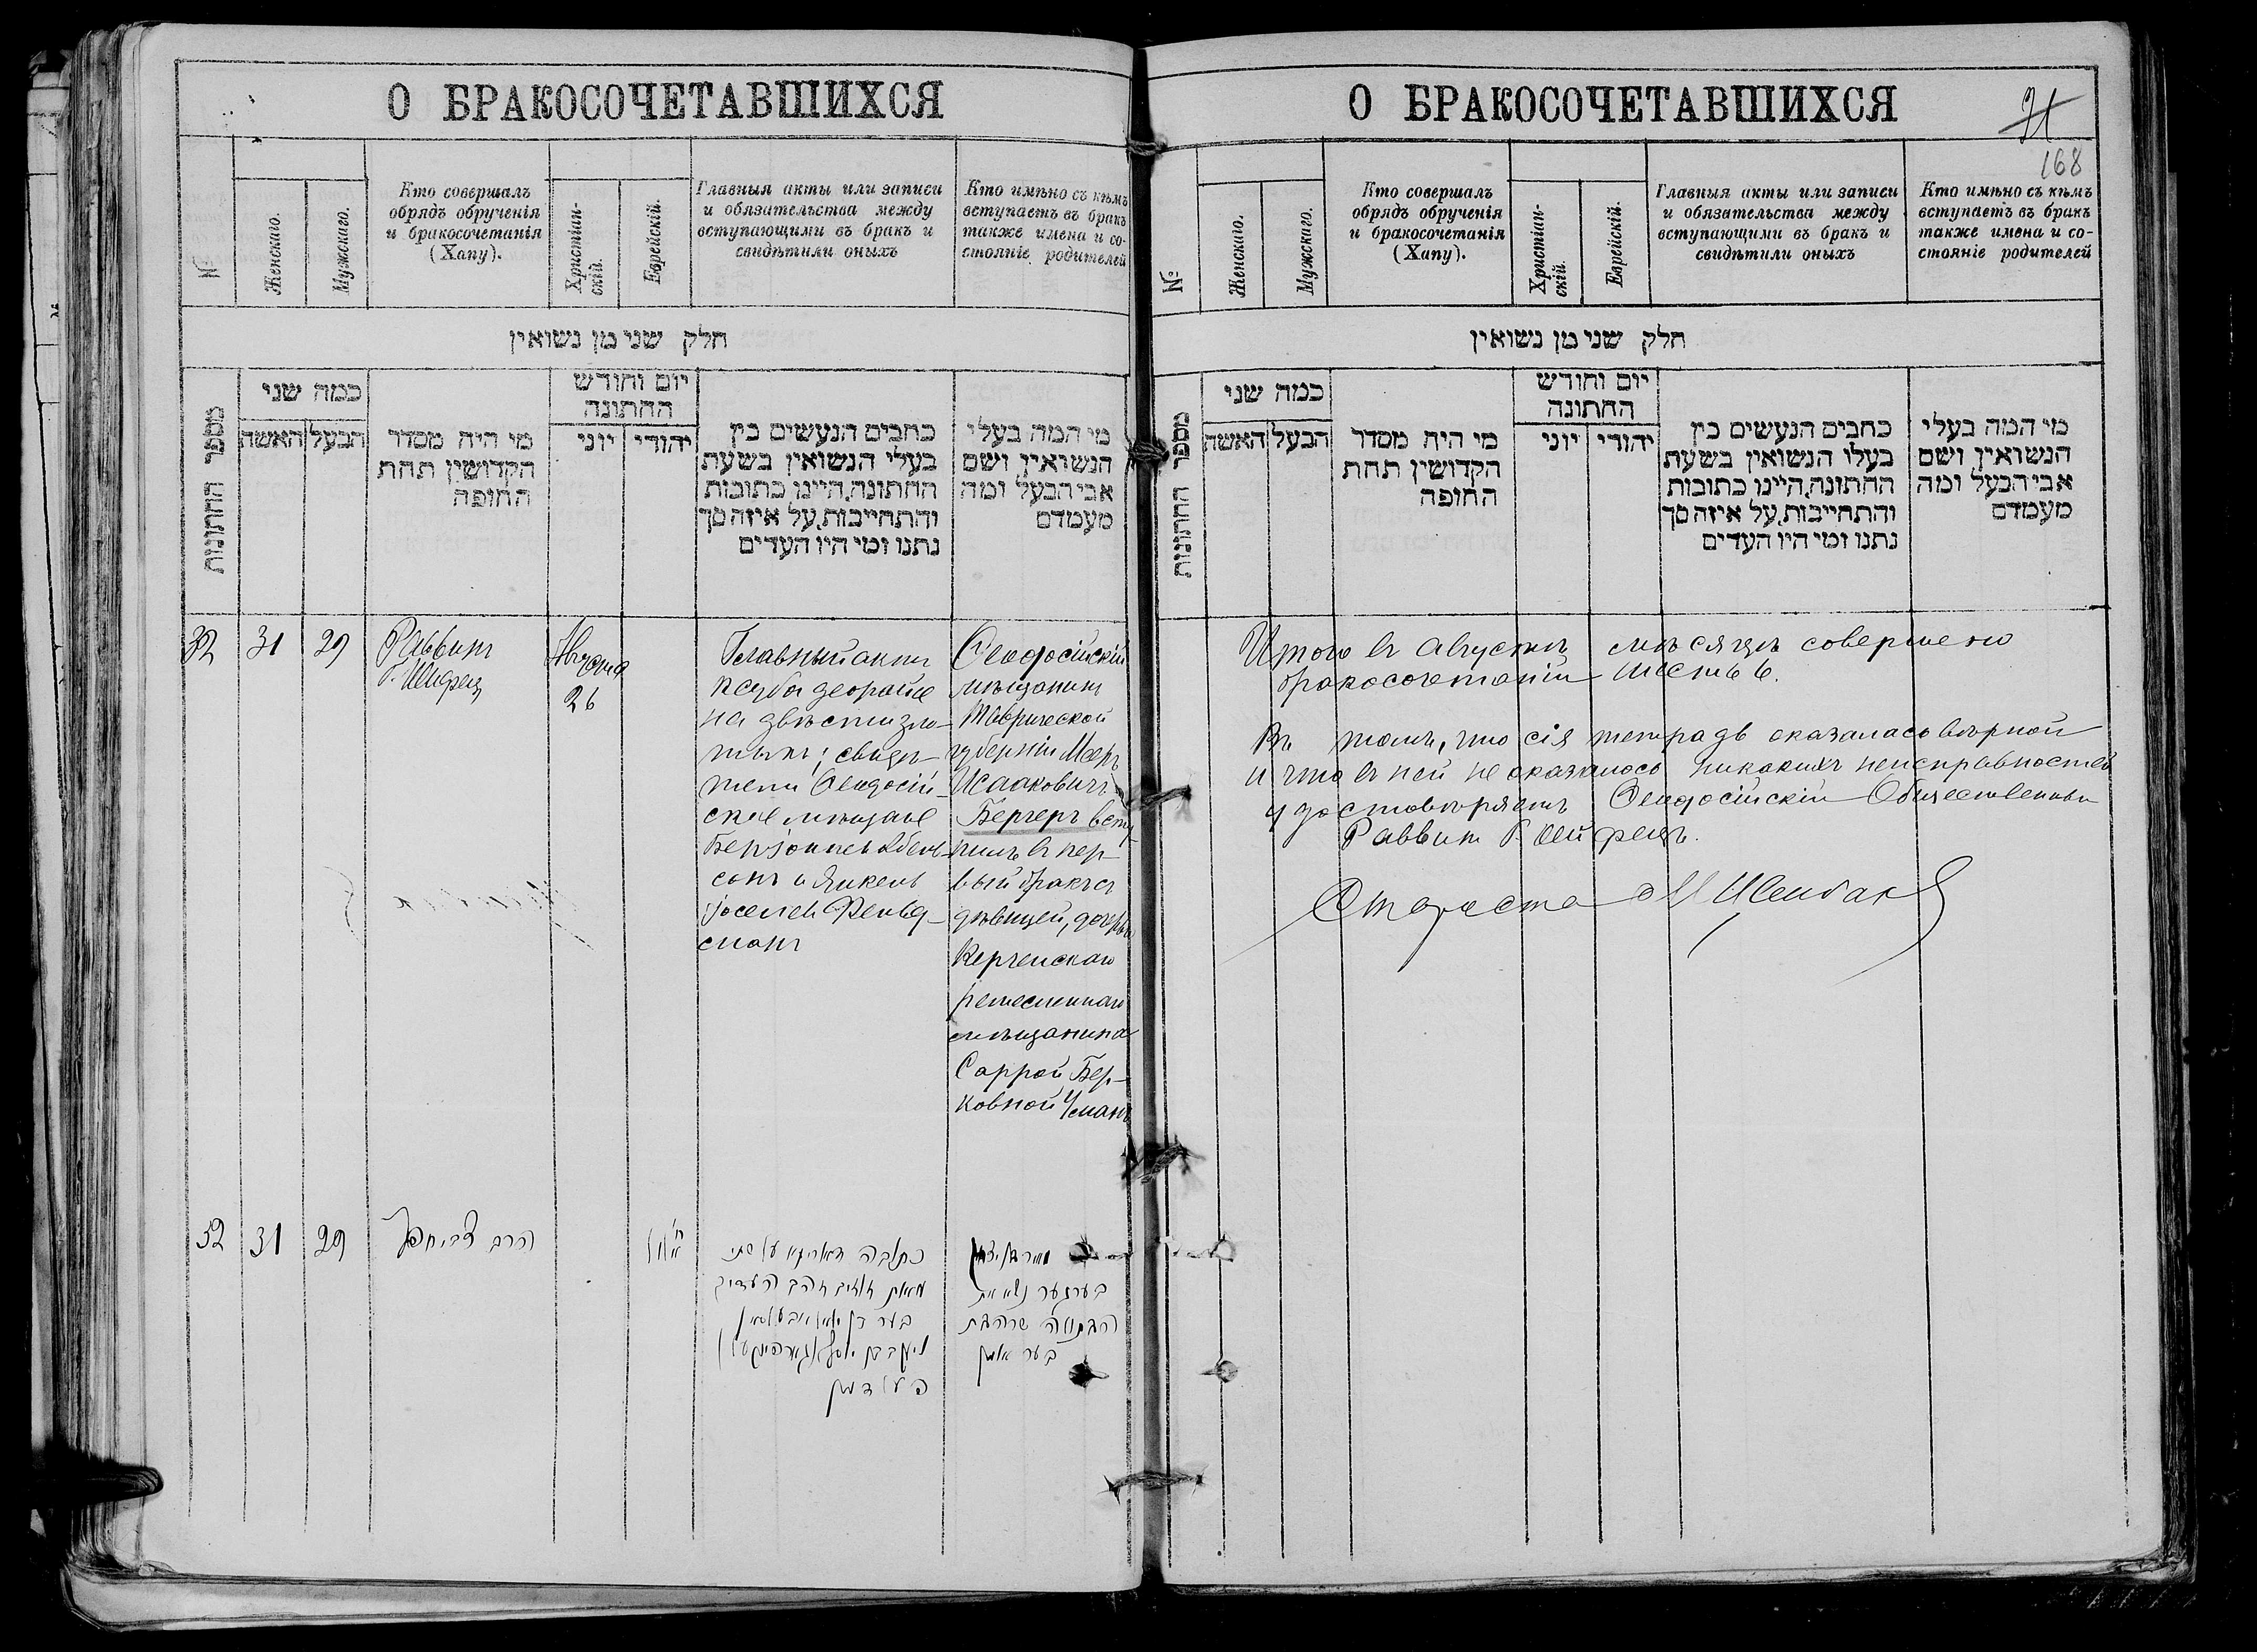 О БРАКОСОЧЕТАВШИХСЯ
№
Женскаго.
Мужскаго.
Кто совершалъ
обрядъ обрученія
и бракосочетанія
(Хапу).
Христіан-
скій.
Еврейскій.
Главныя акты или записи
и обязательства между
вступающими въ бракъ и
свидѣтили оныхъ
Кто имѣно съ кѣмъ
вступаетъ въ бракъ
также имена и со-
стояніе родителей
חלק שני מן נשואין
מספר החתונות
כמה שני
האשה
הבעל
מי היה מסדר
הקדושין תחת
החופה
יום וחודש
החתונה
יוני
יהודי
כתבים הנעשים בין
בעלי הנשואין בשעת
החתונה, היינו כתובות
והתחייבות, על איזה סך
נתנו ומי היו העדים
מי המה בעלי
הנשואין ושם
אבי הבעל ומה
מעמדם
32
31
29
Раввинъ
Г. Шифрец
Августа
26
Главный актъ
на двѣсти зло-
тыхъ; свидѣ-
тели Ѳеодосій-
скіе мѣщане
сонъ и Янкель
Іоселев Фельд-
манъ
Ѳеодосійскій
мѣщанинъ
Таврической
губерніи Мееръ
Исааковичъ
Бергеръ всту-
пилъ въ пер-
вый бракъ съ
дѣвицей, дочерью
Керченскаго
ремесленнаго
мѣщанина
Саррой Бер-
ковной Уманъ
32
31
29
הרב
אלול
כתובה דאורייתא על שתי
מאות זהב העדים
בערגער נשא את
הבתולה שרה בת
בער אומן
О БРАКОСОЧЕТАВШИХСЯ
21
168
№
Женскаго.
Мужскаго.
Кто совершалъ
обрядъ обрученія
и бракосочетанія
(Хапу).
Христіан-
скій.
Еврейскій.
Главныя акты или записи
и обязательства между
вступающими въ бракъ и
свидѣтили оныхъ
Кто имѣно съ кѣмъ
вступаетъ въ бракъ
также имена и со-
стояніе родителей
חלק שני מן נשואין
מספר החתונות
כמה שני
האשה
הבעל
מי היה מסדר
הקדושין תחת
החופה
יום וחודש
החתונה
יוני
יהודי
כתבים הנעשים בין
בעלו הנשואין בשעת
החתונה, היינו כתובות
והתחייבות, על איזה סך
נתנו ומי היו העדים
מי המה בעלי
הנשואין ושם
אבי הבעל ומה
מעמדם
Итого въ Августѣ мѣсяцѣ совершено
бракосочетаній шесть 6.
Въ томъ, что сія тетрадь оказалась вѣрной
и что въ ней не оказалось никакихъ неисправностей
удостовѣряетъ Ѳеодосійскій Общественный
Раввинъ Г. Шифрецъ.
Староста М